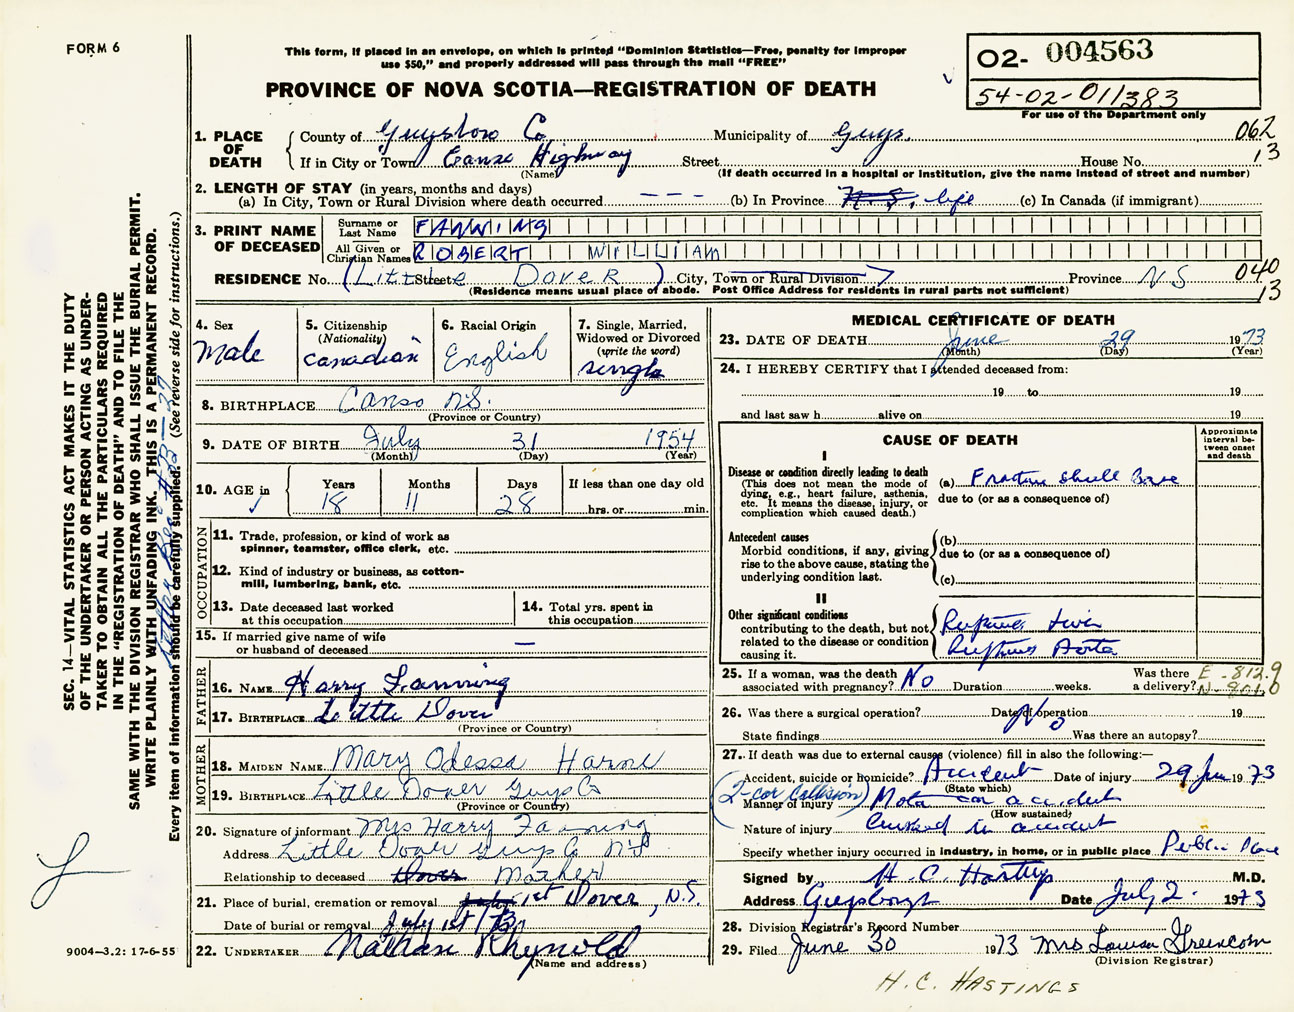 FORM 6
This form, if placed in an envelope, on which is printed "Dominion Statistics—Free, penalty for improper
use $50," and properly addressed will pass through the mail "FREE"
PROVINCE OF NOVA SCOTIA—REGISTRATION OF DEATH
02- 004563
54-02-011383
For use of the Department only
1. PLACE OF DEATH
County of Guysboro Co. Municipality of Guys. 062
If in City or Town Canso Highway Street House No. 13
(Name) (If death occurred in a hospital or institution, give the name instead of street and number)
2. LENGTH OF STAY (in years, months and days)
(a) In City, Town or Rural Division where death occurred - - - (b) In Province N.S. life (c) In Canada (if immigrant)
3. PRINT NAME OF DECEASED
Surname or Last Name FANNING
All Given or Christian Names ROBERT WILLIAM
RESIDENCE No. (Little Street Dover) City, Town or Rural Division Province NS 040
(Residence means usual place of abode. Post Office Address for residents in rural parts not sufficient) 13
4. Sex
Male
5. Citizenship
(Nationality)
Canadian
6. Racial Origin
English
7. Single, Married,
Widowed or Divorced
(write the word)
single
8. BIRTHPLACE Canso N.S.
(Province or Country)
9. DATE OF BIRTH July 31 1954
(Month) (Day) (Year)
10. AGE in
Years Months Days If less than one day old
18 11 28 hrs. or min.
OCCUPATION
11. Trade, profession, or kind of work as
spinner, teamster, office clerk, etc.
12. Kind of industry or business, as cotton-
mill, lumbering, bank, etc.
13. Date deceased last worked
at this occupation
14. Total yrs. spent in
this occupation
15. If married give name of wife
or husband of deceased —
FATHER
16. NAME Harry Fanning
17. BIRTHPLACE Little Dover
(Province or Country)
MOTHER
18. MAIDEN NAME Mary Odessa Horne
19. BIRTHPLACE Little Dover Guys Co
(Province or Country)
20. Signature of informant Mrs Harry Fanning
Address Little Dover Guys Co NS
Relationship to deceased Mother
21. Place of burial, cremation or removal Dover, N.S.
Date of burial or removal July 1st/73
22. UNDERTAKER Nathan Rhynold
(Name and address)
MEDICAL CERTIFICATE OF DEATH
23. DATE OF DEATH June 29 1973
(Month) (Day) (Year)
24. I HEREBY CERTIFY that I attended deceased from:
19 to 19
and last saw h alive on 19
CAUSE OF DEATH
Approximate interval between onset and death
I
Disease or condition directly leading to death
(This does not mean the mode of
dying, e.g., heart failure, asthenia,
etc. It means the disease, injury, or
complication which caused death.)
(a) Fracture skull Base
due to (or as a consequence of)
Antecedent causes
Morbid conditions, if any, giving
rise to the above cause, stating the
underlying condition last.
(b)
due to (or as a consequence of)
(c)
II
Other significant conditions
contributing to the death, but not
related to the disease or condition
causing it.
Ruptured Liver
Ruptured Aorta
25. If a woman, was the death
associated with pregnancy? No Duration weeks. Was there
a delivery?
E-812.9
N-801.0
26. Was there a surgical operation? Date of operation 19
No
State findings Was there an autopsy?
27. If death was due to external causes (violence) fill in also the following:—
Accident, suicide or homicide? Accident Date of injury 29 June 1973
(State which)
(2-car Collision)
Manner of injury Motor car accident
(How sustained)
Nature of injury Crushed in accident
Specify whether injury occurred in industry, in home, or in public place Public Place
Signed by H. C. Hastings M.D.
Address Guysboro Date July 2 1973
28. Division Registrar's Record Number
29. Filed June 30 1973 Mrs Louisa Greencorn
(Division Registrar)
H.C. HASTINGS
SEC. 14—VITAL STATISTICS ACT MAKES IT THE DUTY
OF THE UNDERTAKER OR PERSON ACTING AS UNDER-
TAKER TO OBTAIN ALL THE PARTICULARS REQUIRED
IN THE "REGISTRATION OF DEATH" AND TO FILE THE
SAME WITH THE DIVISION REGISTRAR WHO SHALL ISSUE THE BURIAL PERMIT.
WRITE PLAINLY WITH UNFADING INK. THIS IS A PERMANENT RECORD.
Every item of information should be carefully supplied. (See reverse side for instructions.)
9004—3.2: 17-6-55